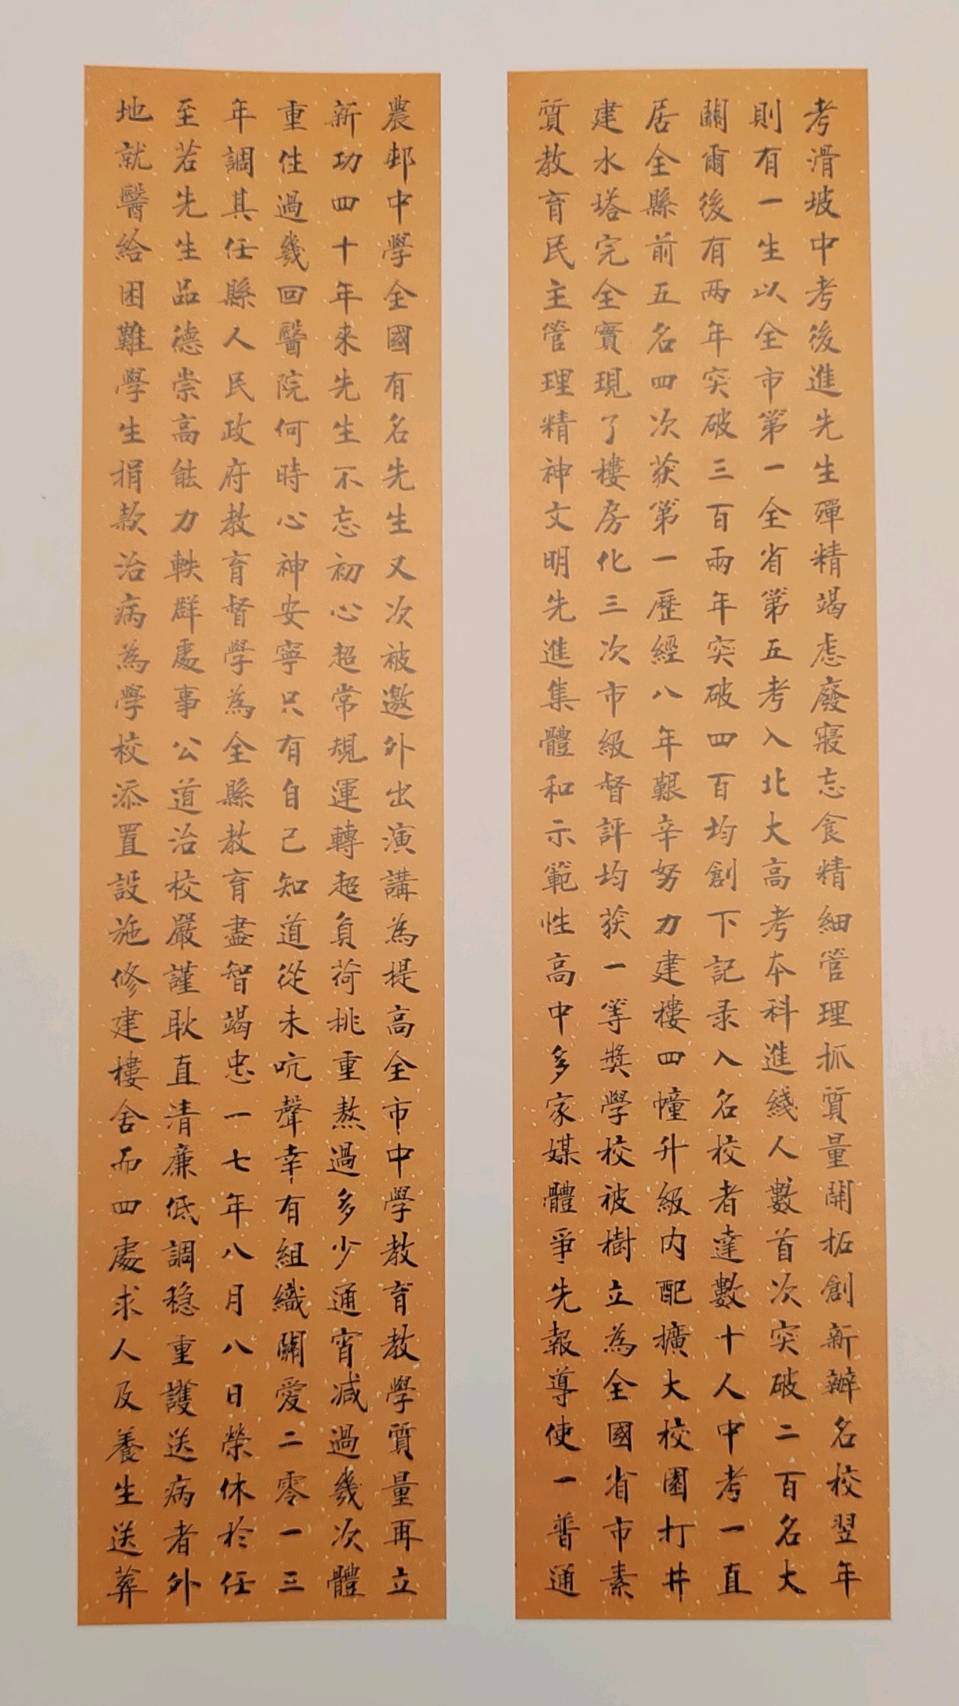 考滑坡中考後進先生殫精竭慮廢寢忘食精細管理抓質量開拓創新辦名校翌年
則有一生以全市第一全省第五考入北大高考本科進綫人數首次突破二百名大
關爾後有两年突破三百兩年突破四百均創下記录入名校者達數十人中考一直
居全縣前五名四次获第一歷經八年艱辛努力建樓四幢升級内配擴大校園打井
建水塔完全實現了樓房化三次市級督評均获一等獎學校被樹立為全國省市素
質教育民主管理精神文明先進集體和示範性高中多家媒體爭先報導使一普通
農邨中學全國有名先生又次被邀外出演講為提高全市中學教育教學質量再立
新功四十年来先生不忘初心超常規運轉超負荷挑重熬過多少通宵减過幾次體
重住過幾回醫院何時心神安寧只有自己知道從未吭聲幸有組織關爱二零一三
年調其任縣人民政府教育督學為全縣教育盡智竭忠一七年八月八日榮休於任
至若先生品德崇高能力軼群處事公道治校嚴謹耿直清廉低調稳重護送病者外
地就醫給困難學生捐款治病為學校添置設施修建樓舍而四處求人及養生送葬